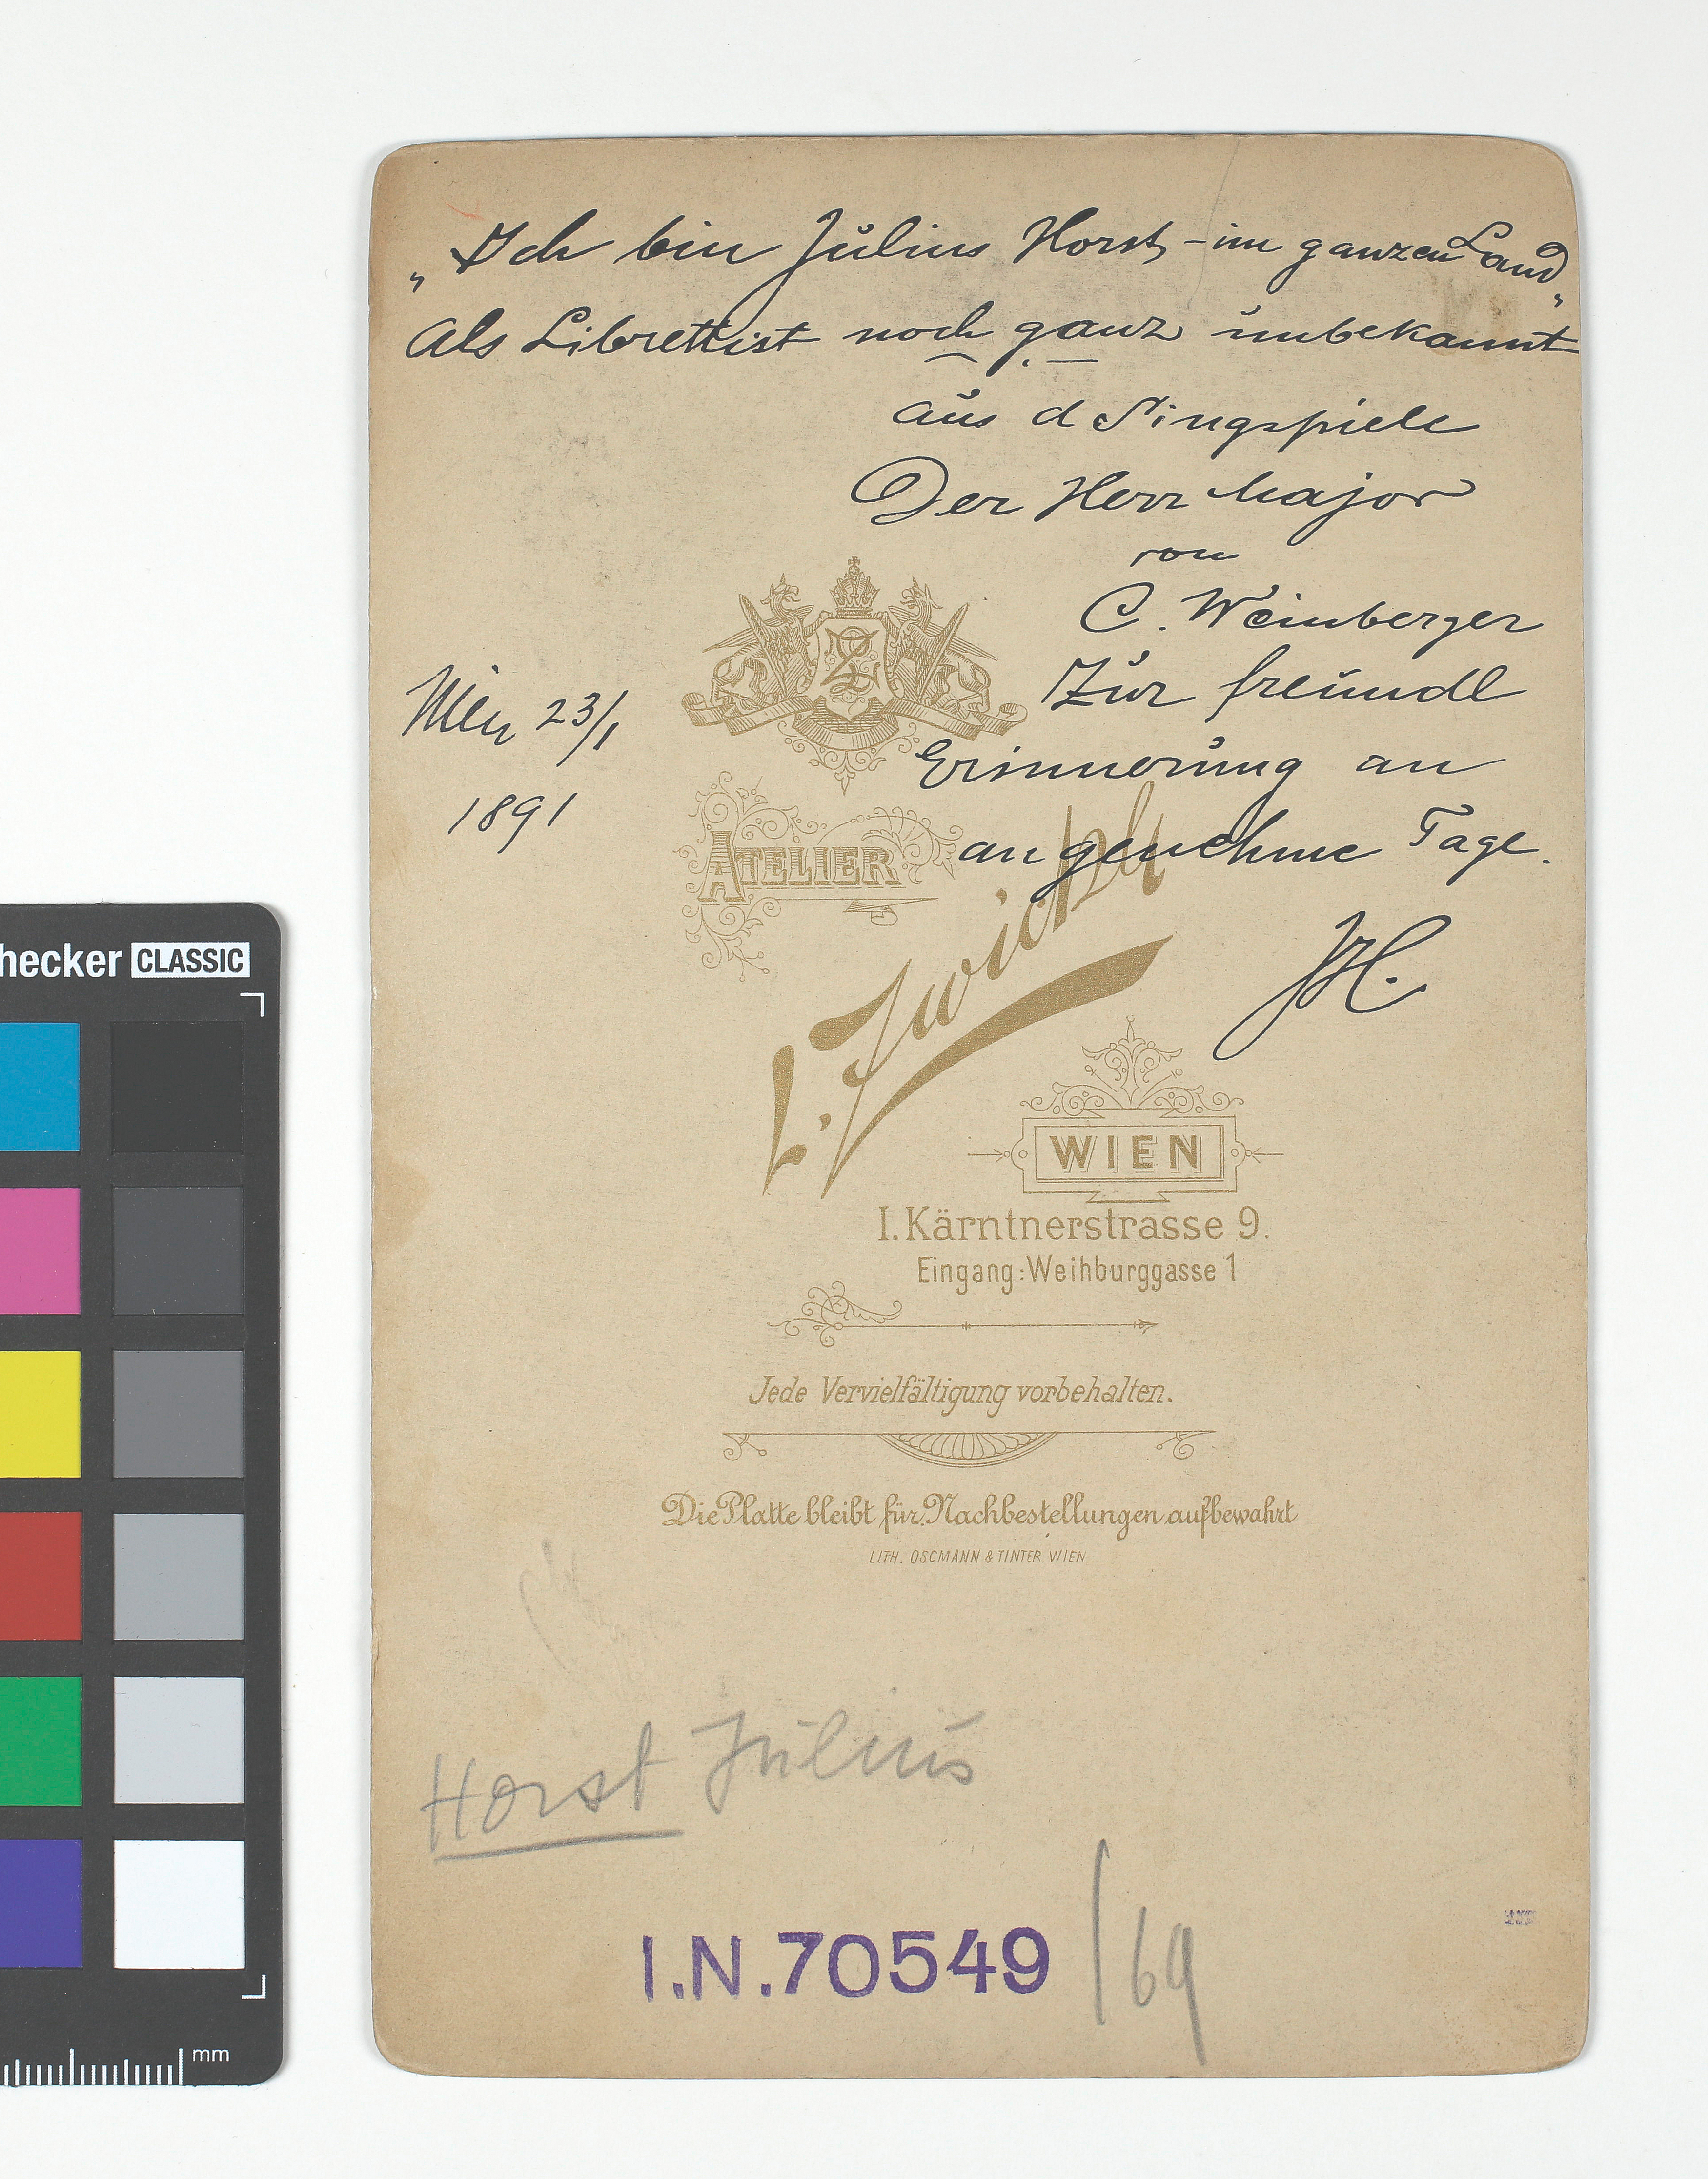 „Ich bin Julius Horst - im ganzen Land„
Als Librettist noch ganz unbekannt
aus d Singspiele
Der Herr Major
von
C. Weinberger
Zur freundl
Erinnerung an
angenehme Tage.
JH.
Wien 23/1
1891
ATELIER
L. Zwickl
WIEN
I. Kärntnerstrasse 9.
Eingang: Weihburggasse 1
Jede Vervielfältigung vorbehalten.
Die Platte bleibt für Nachbestellungen aufbewahrt
LITH. OSCMANN & TINTER WIEN
Horst Julius
I.N. 70549 /69
hecker CLASSIC
mm